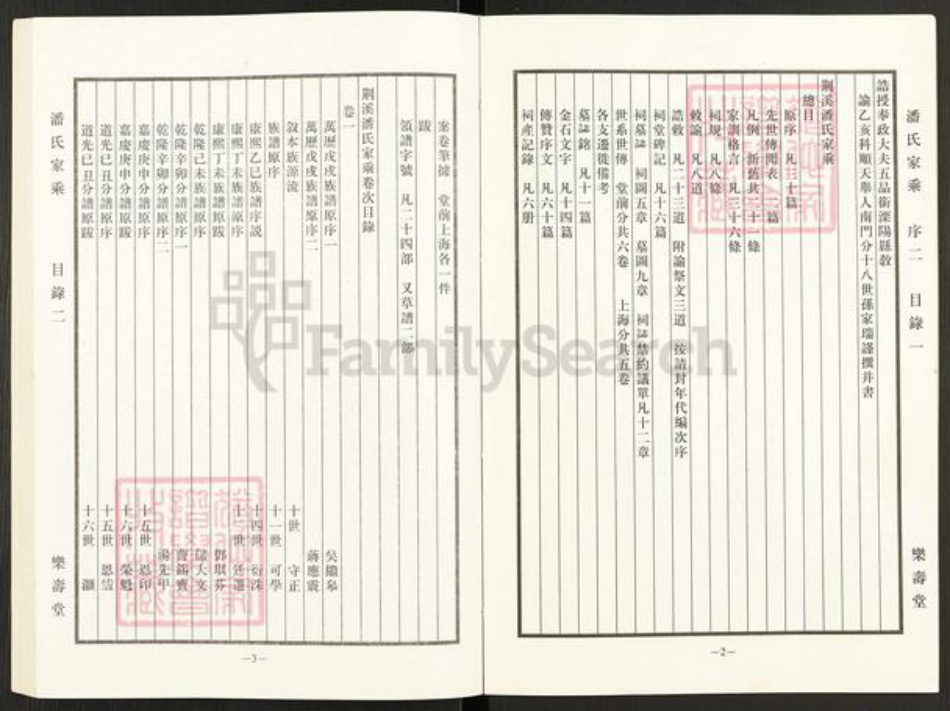 潘氏家乘 序二 目錄一 樂壽堂
誥授奉政大夫五品銜溧陽縣教
諭乙亥科順天舉人南門分十八世孫家瑞謹撰并書
荆溪潘氏家乘
總目
原序 凡三十篇
先世傳聞表 二篇
凡例 新舊共二十一條
家訓格言 凡三十六條
祠規 凡八條
敕諭 凡八道
誥敕 凡二十三道 附諭祭文三道 按請封年代編次序
祠堂碑記 凡十六篇
祠墓誌 祠圖五章 墓圖九章 祠誌禁約議單凡十二章
世系世傳 堂前分共六卷 上海分共五卷
各支遷徙備考
墓誌銘 凡十一篇
金石文字 凡十四篇
傳贊序文 凡六十篇
祠產記錄 凡六册
—2—
案卷筆據 堂前上海各一件
跋
領譜字號 凡二十四部 又草譜二部
荆溪潘氏家乘卷次目錄
卷一
萬歷戊戌族譜原序一 吳繼皋
萬歷戊戌族譜原序二 蔣應震
叙本族源流 十世 守正
族譜原序 十一世 可學
康熙乙巳族譜序説 十四世 衍洙
康熙丁未族譜原序 十 世 廷選
康熙丁未族譜原跋 鄧琪芬
乾隆己未族譜原序 儲大文
乾隆辛卯分譜原序一 曹錫寶
乾隆辛卯分譜原序二 湯先甲
嘉慶庚申分譜原序 十五世 恩印
嘉慶庚申分譜原跋 十六世 榮魁
道光己丑分譜原序 十五世 恩
道光己丑分譜原跋 十六世 灝
潘氏家乘 目錄二 樂壽堂
—3—
FamilySearch